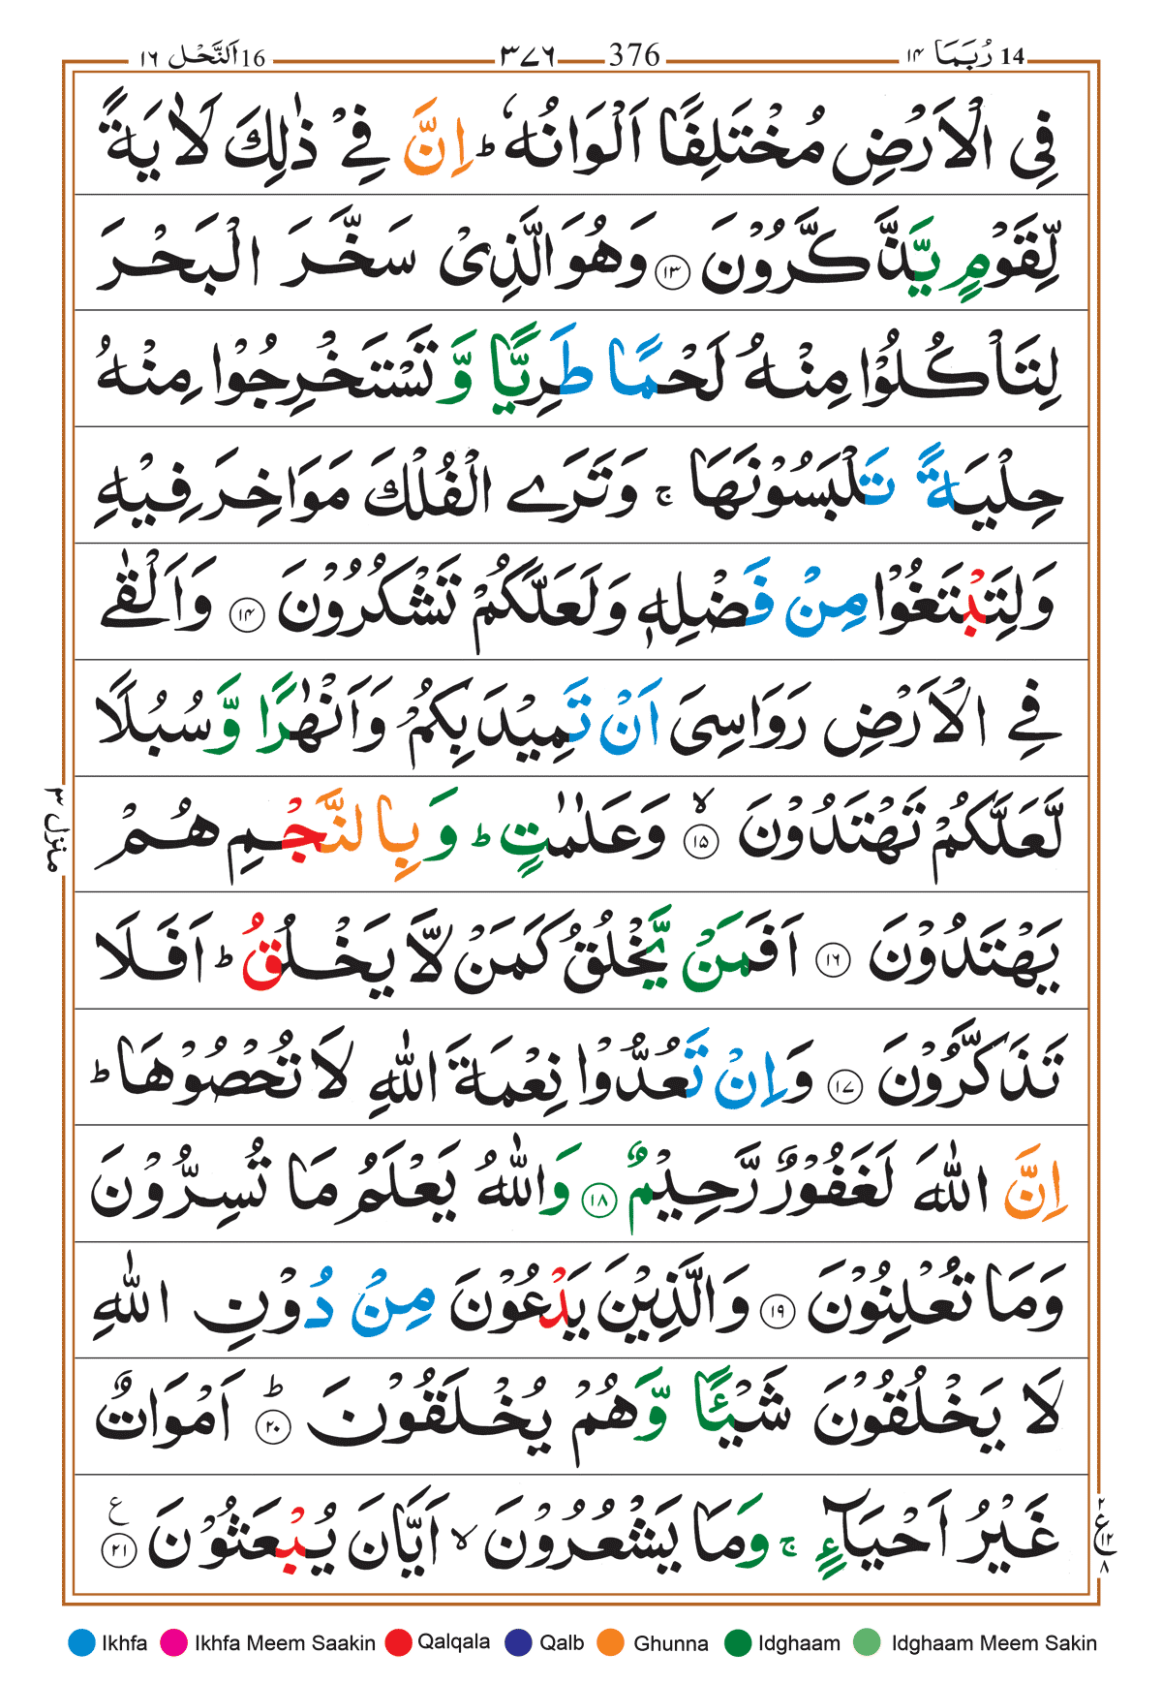 14 رُبَمَا ۱۴
376 ۳۷۶
16 اَلنَّحْل ۱۶
فِی الْاَرْضِ مُخْتَلِفًا اَلْوَانُهٗ ؕ اِنَّ فِیْ ذٰلِكَ لَاٰیَةً
لِّقَوْمٍ یَّذَّكَّرُوْنَ ۱۳ وَهُوَ الَّذِیْ سَخَّرَ الْبَحْرَ
لِتَاْكُلُوْا مِنْهُ لَحْمًا طَرِیًّا وَّ تَسْتَخْرِجُوْا مِنْهُ
حِلْیَةً تَلْبَسُوْنَهَا ۚ وَتَرَی الْفُلْكَ مَوَاخِرَ فِیْهِ
وَلِتَبْتَغُوْا مِنْ فَضْلِهٖ وَلَعَلَّكُمْ تَشْكُرُوْنَ ۱۴ وَاَلْقٰی
فِی الْاَرْضِ رَوَاسِیَ اَنْ تَمِیْدَ بِكُمْ وَاَنْهٰرًا وَّسُبُلًا
لَّعَلَّكُمْ تَهْتَدُوْنَ ۙ ۱۵ وَعَلٰمٰتٍ ؕ وَبِالنَّجْمِ هُمْ
یَهْتَدُوْنَ ۱۶ اَفَمَنْ یَّخْلُقُ كَمَنْ لَّا یَخْلُقُ ؕ اَفَلَا
تَذَكَّرُوْنَ ۱۷ وَاِنْ تَعُدُّوْا نِعْمَةَ اللّٰهِ لَا تُحْصُوْهَا ؕ
اِنَّ اللّٰهَ لَغَفُوْرٌ رَّحِیْمٌ ۱۸ وَاللّٰهُ یَعْلَمُ مَا تُسِرُّوْنَ
وَمَا تُعْلِنُوْنَ ۱۹ وَالَّذِیْنَ یَدْعُوْنَ مِنْ دُوْنِ اللّٰهِ
لَا یَخْلُقُوْنَ شَیْـًٔا وَّهُمْ یُخْلَقُوْنَ ؕ ۲۰ اَمْوَاتٌ
غَیْرُ اَحْیَآءٍ ۚ وَمَا یَشْعُرُوْنَ ۙ اَیَّانَ یُبْعَثُوْنَ ۲۱ ع
منزل ۳
۲ ع ۱۲ ۸
Ikhfa Ikhfa Meem Saakin Qalqala Qalb Ghunna Idghaam Idghaam Meem Sakin